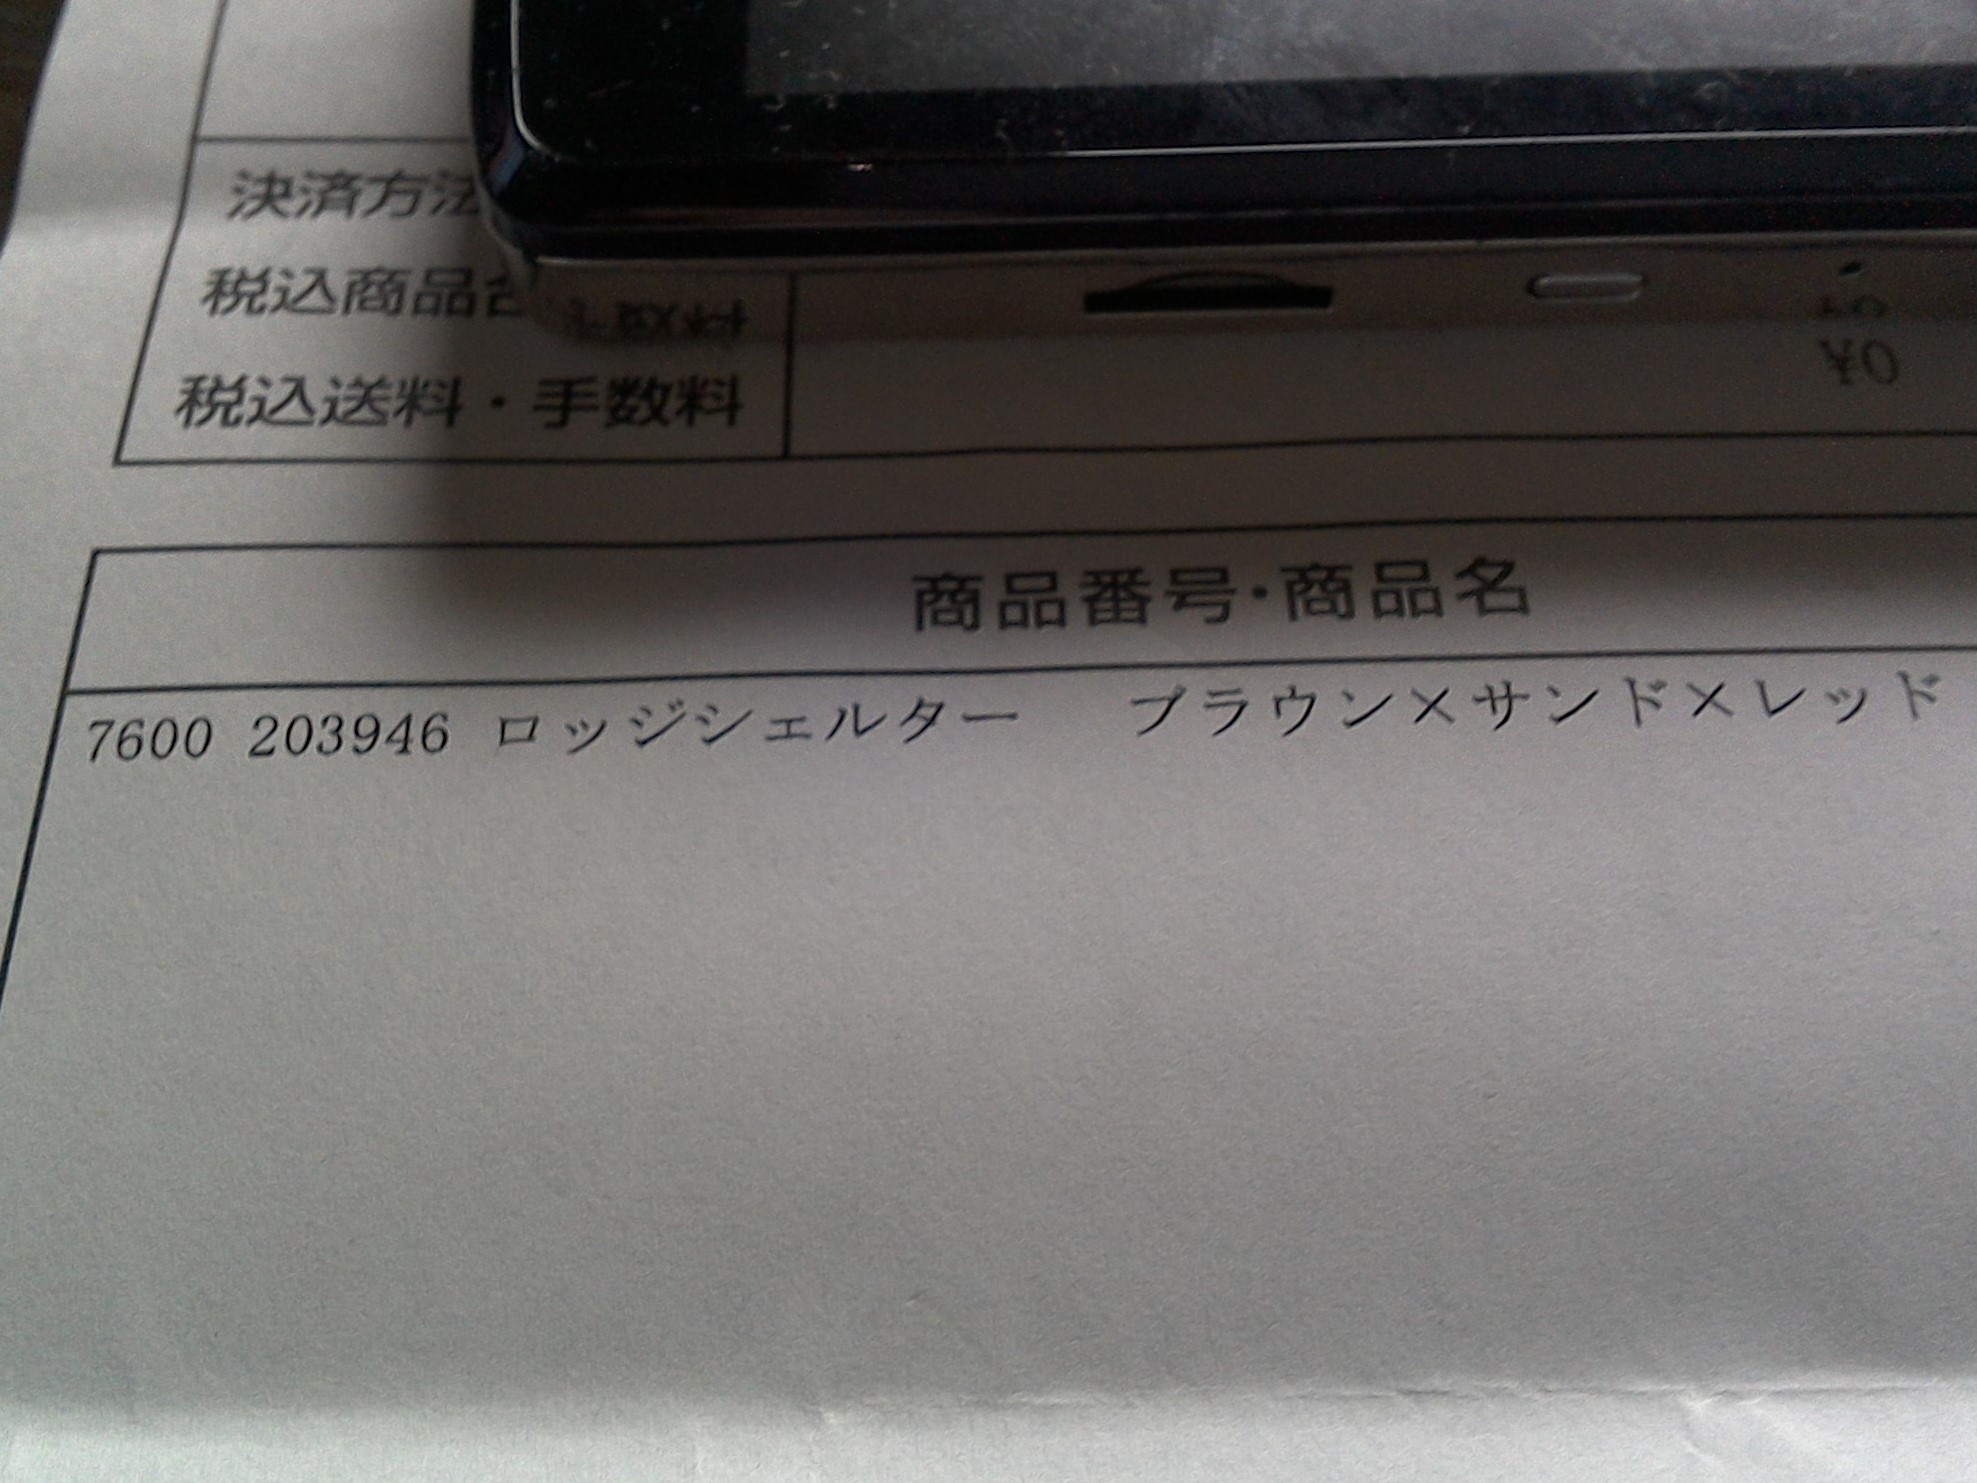 決済方法
税込商品合
税込送料・手数料
商品番号・商品名
7600 203946 ロッジシェルター　ブラウン×サンド×レッド